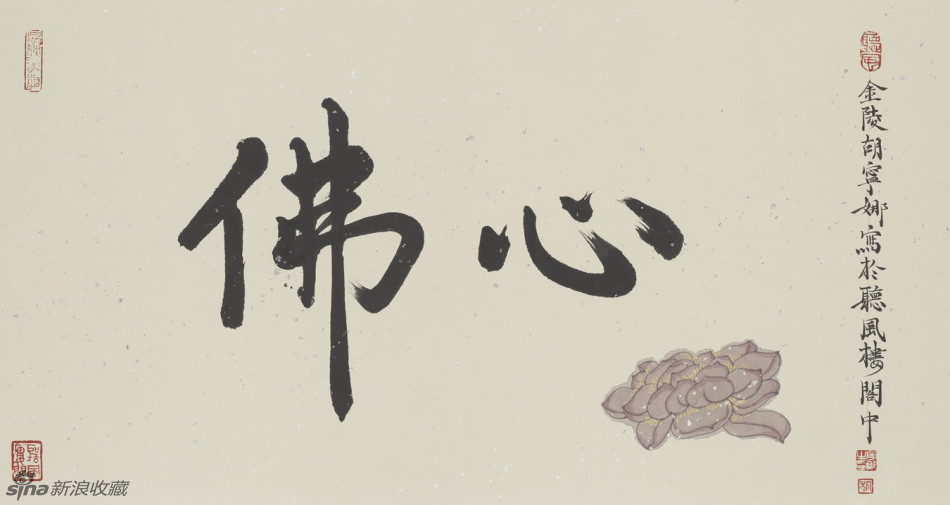 心佛
金陵胡寧娜寫於聽風樓閣中
sina新浪收藏